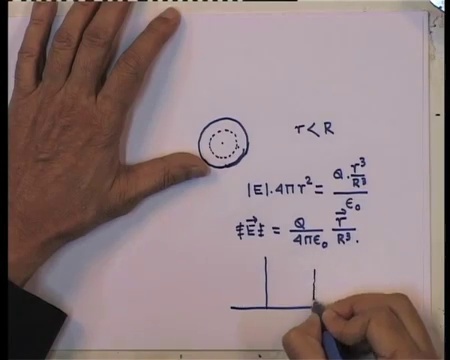 r < R
|E|. 4πr² = Q. r³/R³ / ε₀
|E⃗| = Q/4πε₀ r⃗/R³.